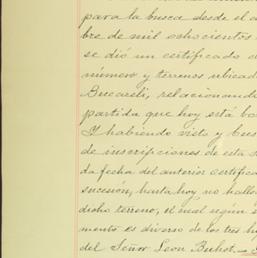 para la busca desde el a
bre de mil ochocientos
se dió un certificado d
número y terrenos ubicad
Bucareli, relacionand
partida que hoy está ba
Y habiendo visto y bus
de inscripciones de esta s
da fecha del anterior certifica
sucesión, hasta hoy, no hallo
dicho terreno, el cual según s
mento es diverso de los tres h
del Señor Leon Buhot.—